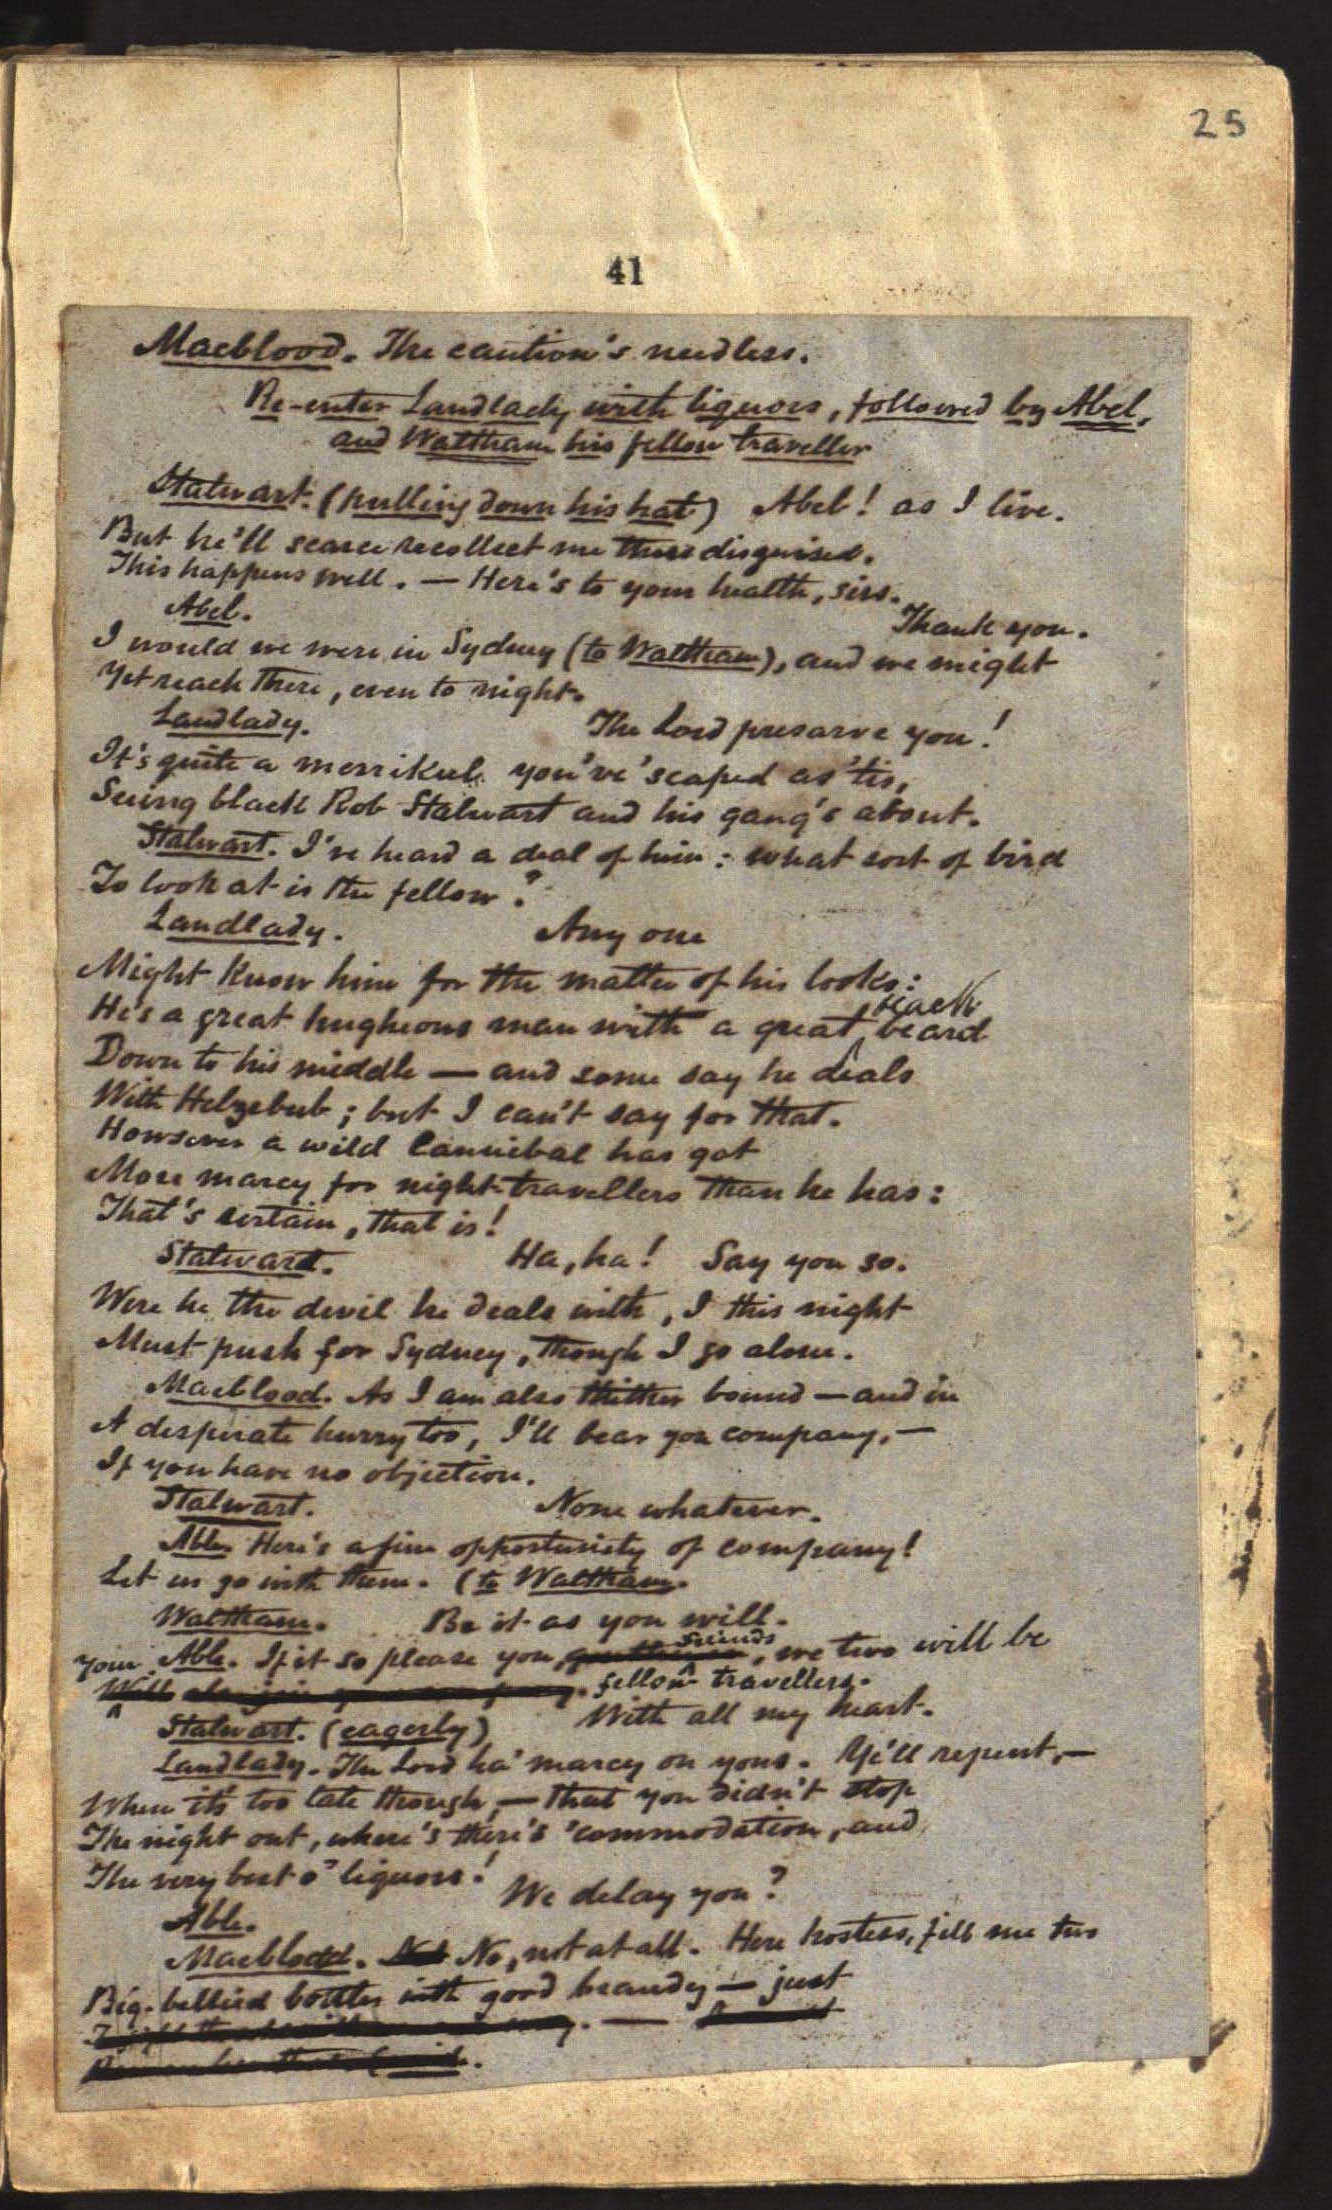 25
41
Macblood. The caution's needless.
Re-enter Landlady with liquors, followed by Abel,
and Waltham his fellow traveller
Stalwart. (pulling down his hat) Abel! as I live.
But he'll scarce recollect me thus disguised.
This happens well. — Here's to your health, sirs.
Abel. Thank you.
I would we were in Sydney (to Waltham), and we might
Yet reach there, even to night.
Landlady. The Lord presarve you!
It's quite a merrikul you've 'scaped as 'tis,
Seeing black Rob Stalwart and his gang's about.
Stalwart. I've heard a deal of him: what sort of bird
To look at is the fellow?
Landlady. Any one
Might know him for the matter of his looks:
black
He's a great hugheous man with a great ^ beard
Down to his middle — and some say he deals
With Helzebub; but I can't say for that.
Howsever a wild Cannibal has got
More marcy for night-travellers than he has:
That's sertain, that is!
Stalwart. Ha, ha! Say you so.
Were he the devil he deals with, I this night
Must push for Sydney, though I go alone.
Macblood. As I am also thither bound — and in
A desperate hurry too, I'll bear you company, —
If you have no objection.
Stalwart. None whatever.
Able. Here's a fine opportunity of company!
Let us go with them. (to Waltham.
Waltham. Be it as you will.
friends
Able. If it so please you, ^, we two will be
your ^ Well fellow travellers.
Stalwart. (eagerly) With all my heart.
Landlady. The Lord ha' marcy on yous. Ye'll repent, —
When it's too late though, — that you didn't stop
The night out, where's there's 'commodation, and
The very best o' liquors!
Able. We delay you?
Macblood. No, not at all. Here hostess, fill me two
Big-bellied bottles with good brandy — just
. —